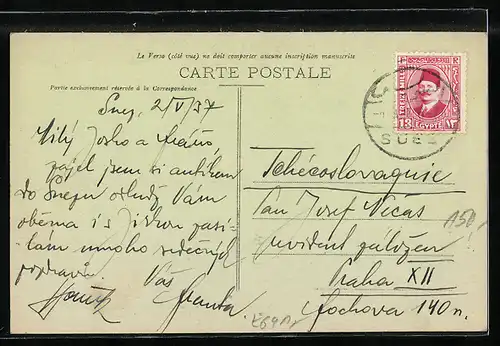 Le Verso (côté vue) ne doit comporter aucune inscription manuscrite
CARTE POSTALE
Partie exclusivement réservée à la Correspondance
Suez, 2/V/37
Milý Josko a
zajel jsem si
do Suezu odtud Vám
oběma i s zasí-
lám mnoho srdečných
pozdravů. Váš
TREIZE MILLS
13
EGYPTE
SUEZ
Tchécoslovaquie
Pan Josef Nečas
revident záložen
Praha XII
Mochova 140 n.
150,-